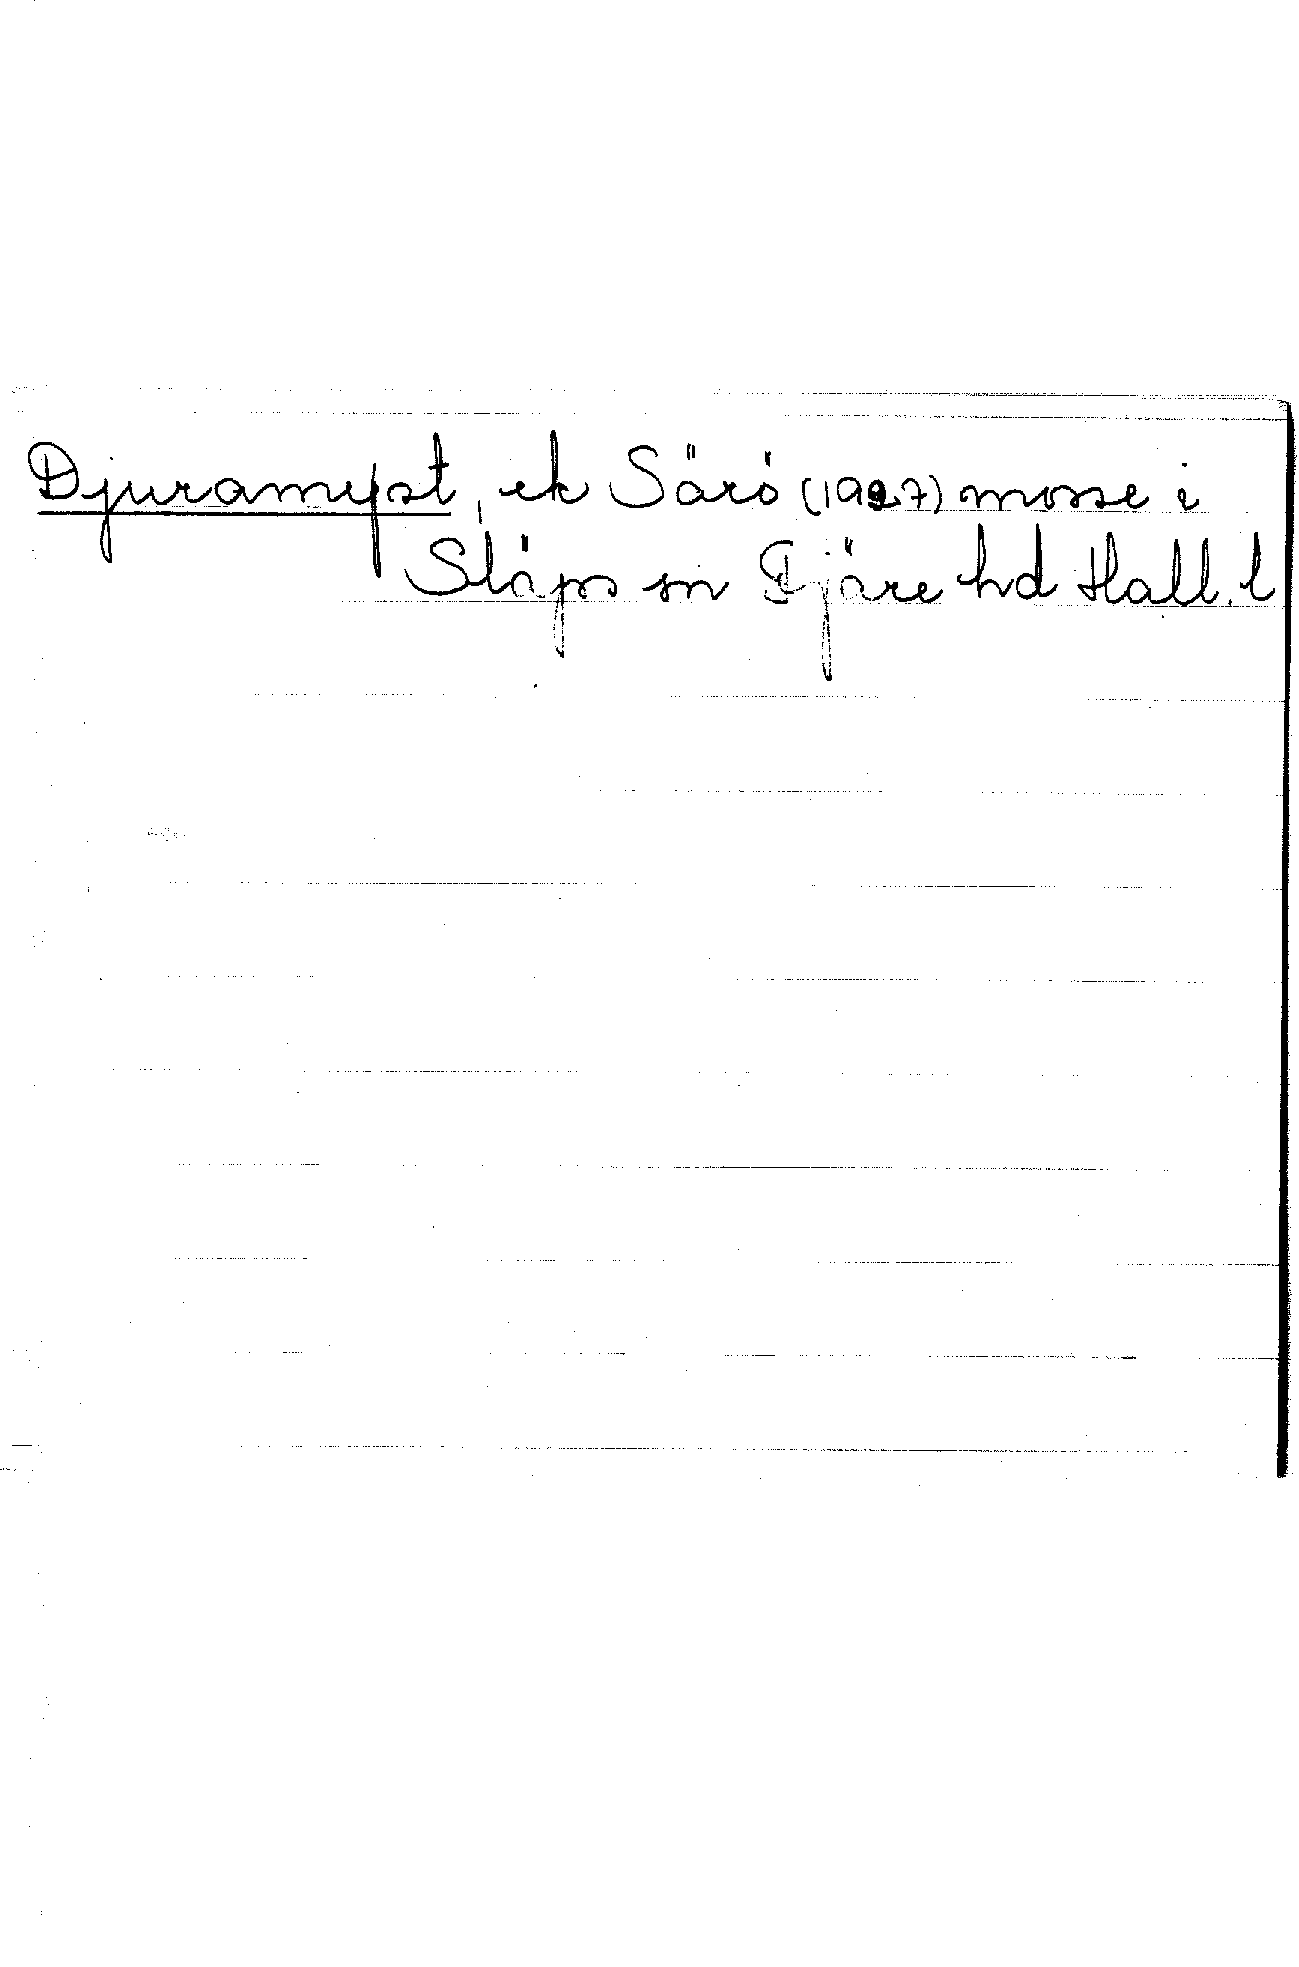 Djuramyst, ek Särö (1927) mosse i
Släps sn Fjäre hd Hall. l